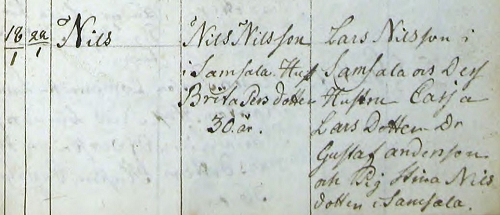 18/1 22/1 Nils
Nils Nilsson
i Samsala. Hust
Brita Pers dotter
30. år.
Lars Nilsson i
Samsala och Des
Hustru Cajsa
Lars Dotter Dr
Gustaf anderson
och Pig Stina Nils
dotter i Samsala.